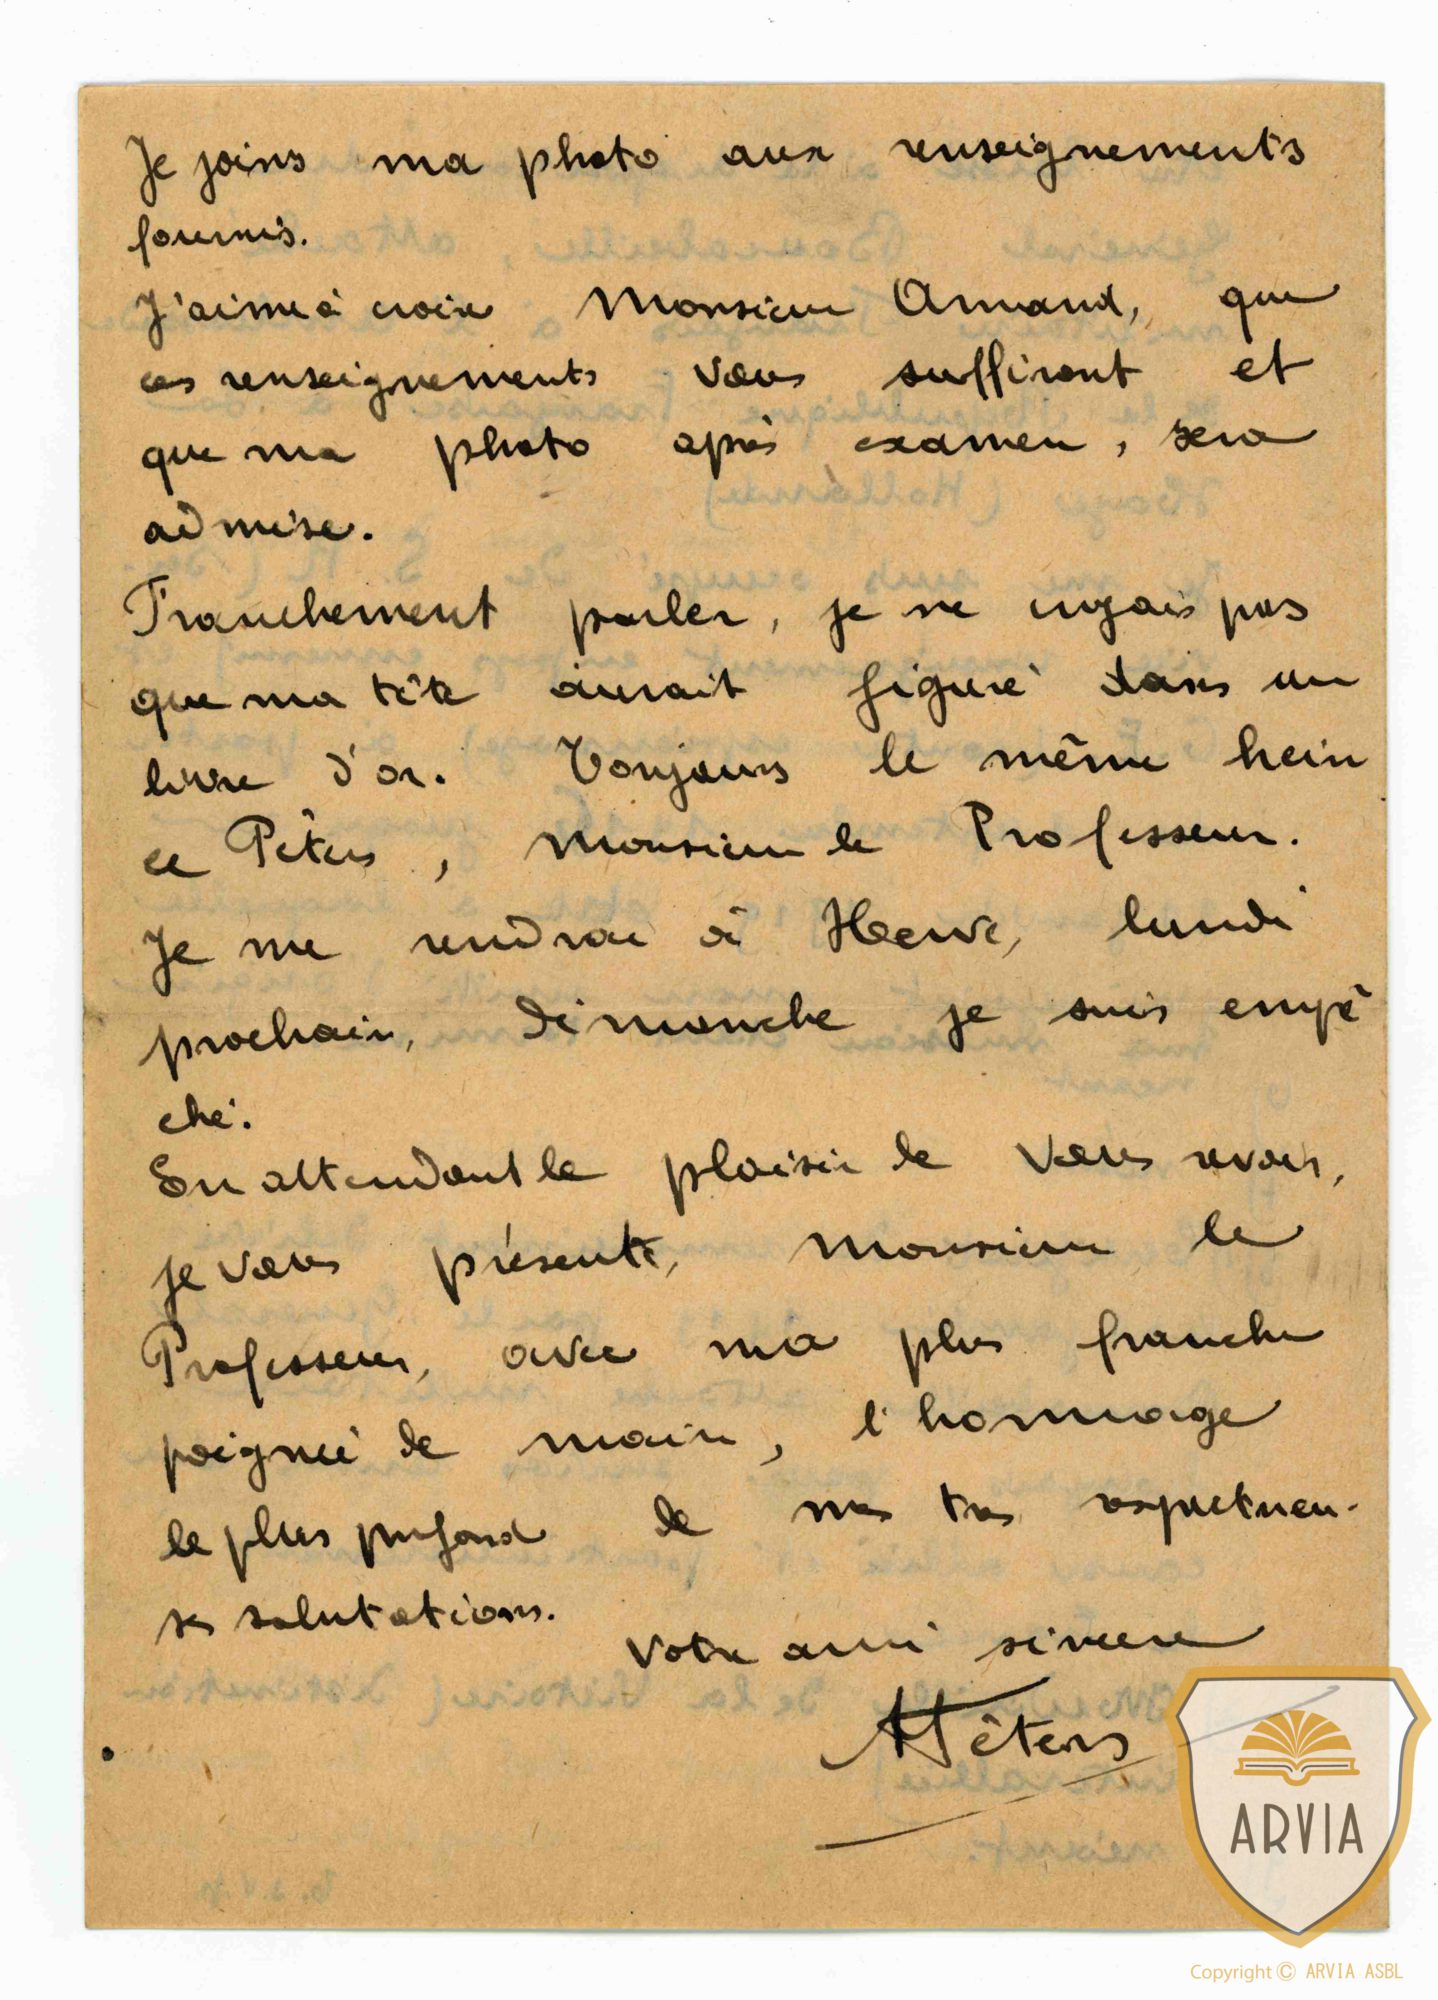 Je joins ma photo aux renseignements
fournis.
J'aime à croire Monsieur Armand, que
ces renseignements vous suffiront et
que ma photo après examen, sera
admise.
Franchement parler, je ne croyais pas
que ma tête aurait figuré dans un
livre d'or. Toujours le même hein
ce Pêters, Monsieur le Professeur.
Je me rendrai à Herve, lundi
prochain, dimanche je suis empê
ché.
En attendant le plaisir de vous revoir,
je vous présente, Monsieur le
Professeur, avec ma plus franche
poignée de main, l'hommage
le plus profond de mes très respectueu-
ses salutations.
Votre ami sincère
Pêters
ARVIA
Copyright © ARVIA ASBL